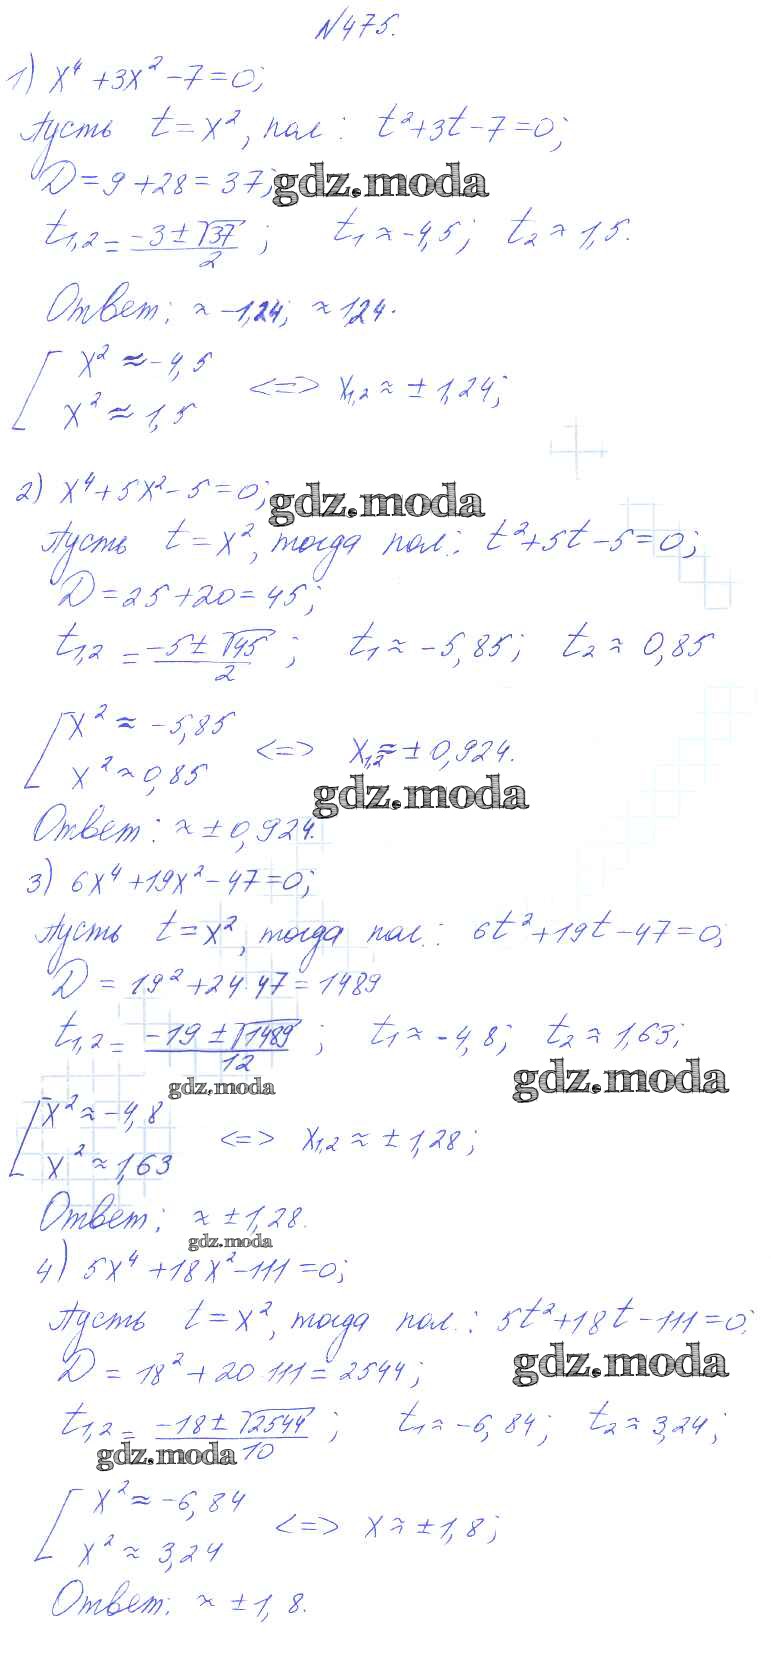 №475.
1) x⁴+3x²-7=0;
Пусть t=x², пол: t²+3t-7=0;
D=9+28=37; gdz.moda
t₁,₂=(-3±√37)/2; t₁≈-4,5; t₂≈1,5.
Ответ: ≈-1,24; ≈1,24.
[ x²≈-4,5
x²≈1,5 <=> x₁,₂≈±1,24;
2) x⁴+5x²-5=0; gdz.moda
Пусть t=x², тогда пол.: t²+5t-5=0;
D=25+20=45;
t₁,₂=(-5±√45)/2; t₁≈-5,85; t₂≈0,85
[ x²≈-5,85
x²≈0,85 <=> x₁,₂≈±0,924.
gdz.moda
Ответ: ≈±0,924.
3) 6x⁴+19x²-47=0;
Пусть t=x², тогда пол.: 6t²+19t-47=0;
D=19²+24·47=1489
t₁,₂=(-19±√1489)/12; t₁≈-4,8; t₂≈1,63;
gdz.moda gdz.moda
[ x²≈-4,8
x²≈1,63 <=> x₁,₂≈±1,28;
Ответ: ≈±1,28.
gdz.moda
4) 5x⁴+18x²-111=0;
Пусть t=x², тогда пол.: 5t²+18t-111=0;
D=18²+20·111=2544; gdz.moda
t₁,₂=(-18±√2544)/10; t₁≈-6,84; t₂≈3,24;
gdz.moda
[ x²≈-6,84
x²≈3,24 <=> x≈±1,8;
Ответ: ≈±1,8.